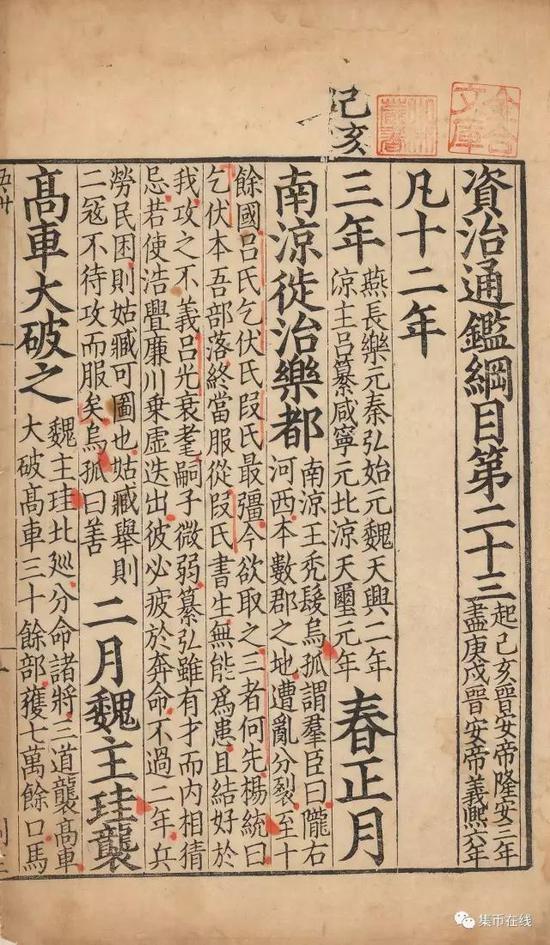 資治通鑑綱目第二十三
起己亥晉安帝隆安三年
盡庚戌晉安帝義熙六年
凡十二年
己亥
三年
燕長樂元秦弘始元魏天興二年
涼王呂纂咸寧元北涼天璽元年
春正月
南涼徙治樂都
南涼王禿髮烏孤謂羣臣曰隴右
河西本數郡之地遭亂分裂至十
餘國呂氏乞伏氏段氏最彊今欲取之三者何先楊統曰
乞伏本吾部落終當服從段氏書生無能爲患且結好於
我攻之不義呂光衰耄嗣子微弱纂弘雖有才而内相猜
忌若使浩亹廉川乗虛迭出彼必疲於奔命不過二年兵
勞民困則姑臧可圖也姑臧舉則
二寇不待攻而服矣烏孤曰善
二月魏主珪襲
髙車大破之
魏主珪北廵分命諸將三道襲髙車
大破髙車三十餘部獲七萬餘口馬
集币在线